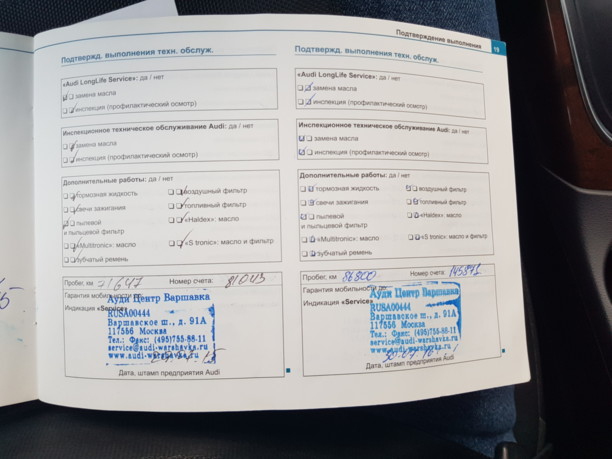 Подтверждение выполнения
19
Подтвержд. выполнения техн. обслуж.
«Audi LongLife Service»: да / нет
замена масла
инспекция (профилактический осмотр)
Инспекционное техническое обслуживание Audi: да / нет
замена масла
инспекция (профилактический осмотр)
Дополнительные работы: да / нет
тормозная жидкость
воздушный фильтр
свечи зажигания
топливный фильтр
пылевой
и пыльцевой фильтр
«Haldex»: масло
«Multitronic»: масло
«S tronic»: масло и фильтр
зубчатый ремень
Пробег, км 71647 Номер счета: 81043
Гарантия мобильности
Индикация «Service»
Ауди Центр Варшавка
RUSA00444
Варшавское ш., д. 91А
117556 Москва
Тел.: Факс: (495)755-88-11
service@audi-warshavka.ru
www.audi-warshavka.ru
Дата, штамп предприятия Audi
Подтвержд. выполнения техн. обслуж.
«Audi LongLife Service»: да / нет
замена масла
инспекция (профилактический осмотр)
Инспекционное техническое обслуживание Audi: да / нет
замена масла
инспекция (профилактический осмотр)
Дополнительные работы: да / нет
тормозная жидкость
воздушный фильтр
свечи зажигания
топливный фильтр
пылевой
и пыльцевой фильтр
«Haldex»: масло
«Multitronic»: масло
«S tronic»: масло и фильтр
зубчатый ремень
Пробег, км 86800 Номер счета:
Гарантия мобильности
Индикация «Service»
Ауди Центр Варшавка
RUSA00444
Варшавское ш., д. 91А
117556 Москва
Тел.: Факс: (495)755-88-11
service@audi-warshavka.ru
www.audi-warshavka.ru
Дата, штамп предприятия Audi